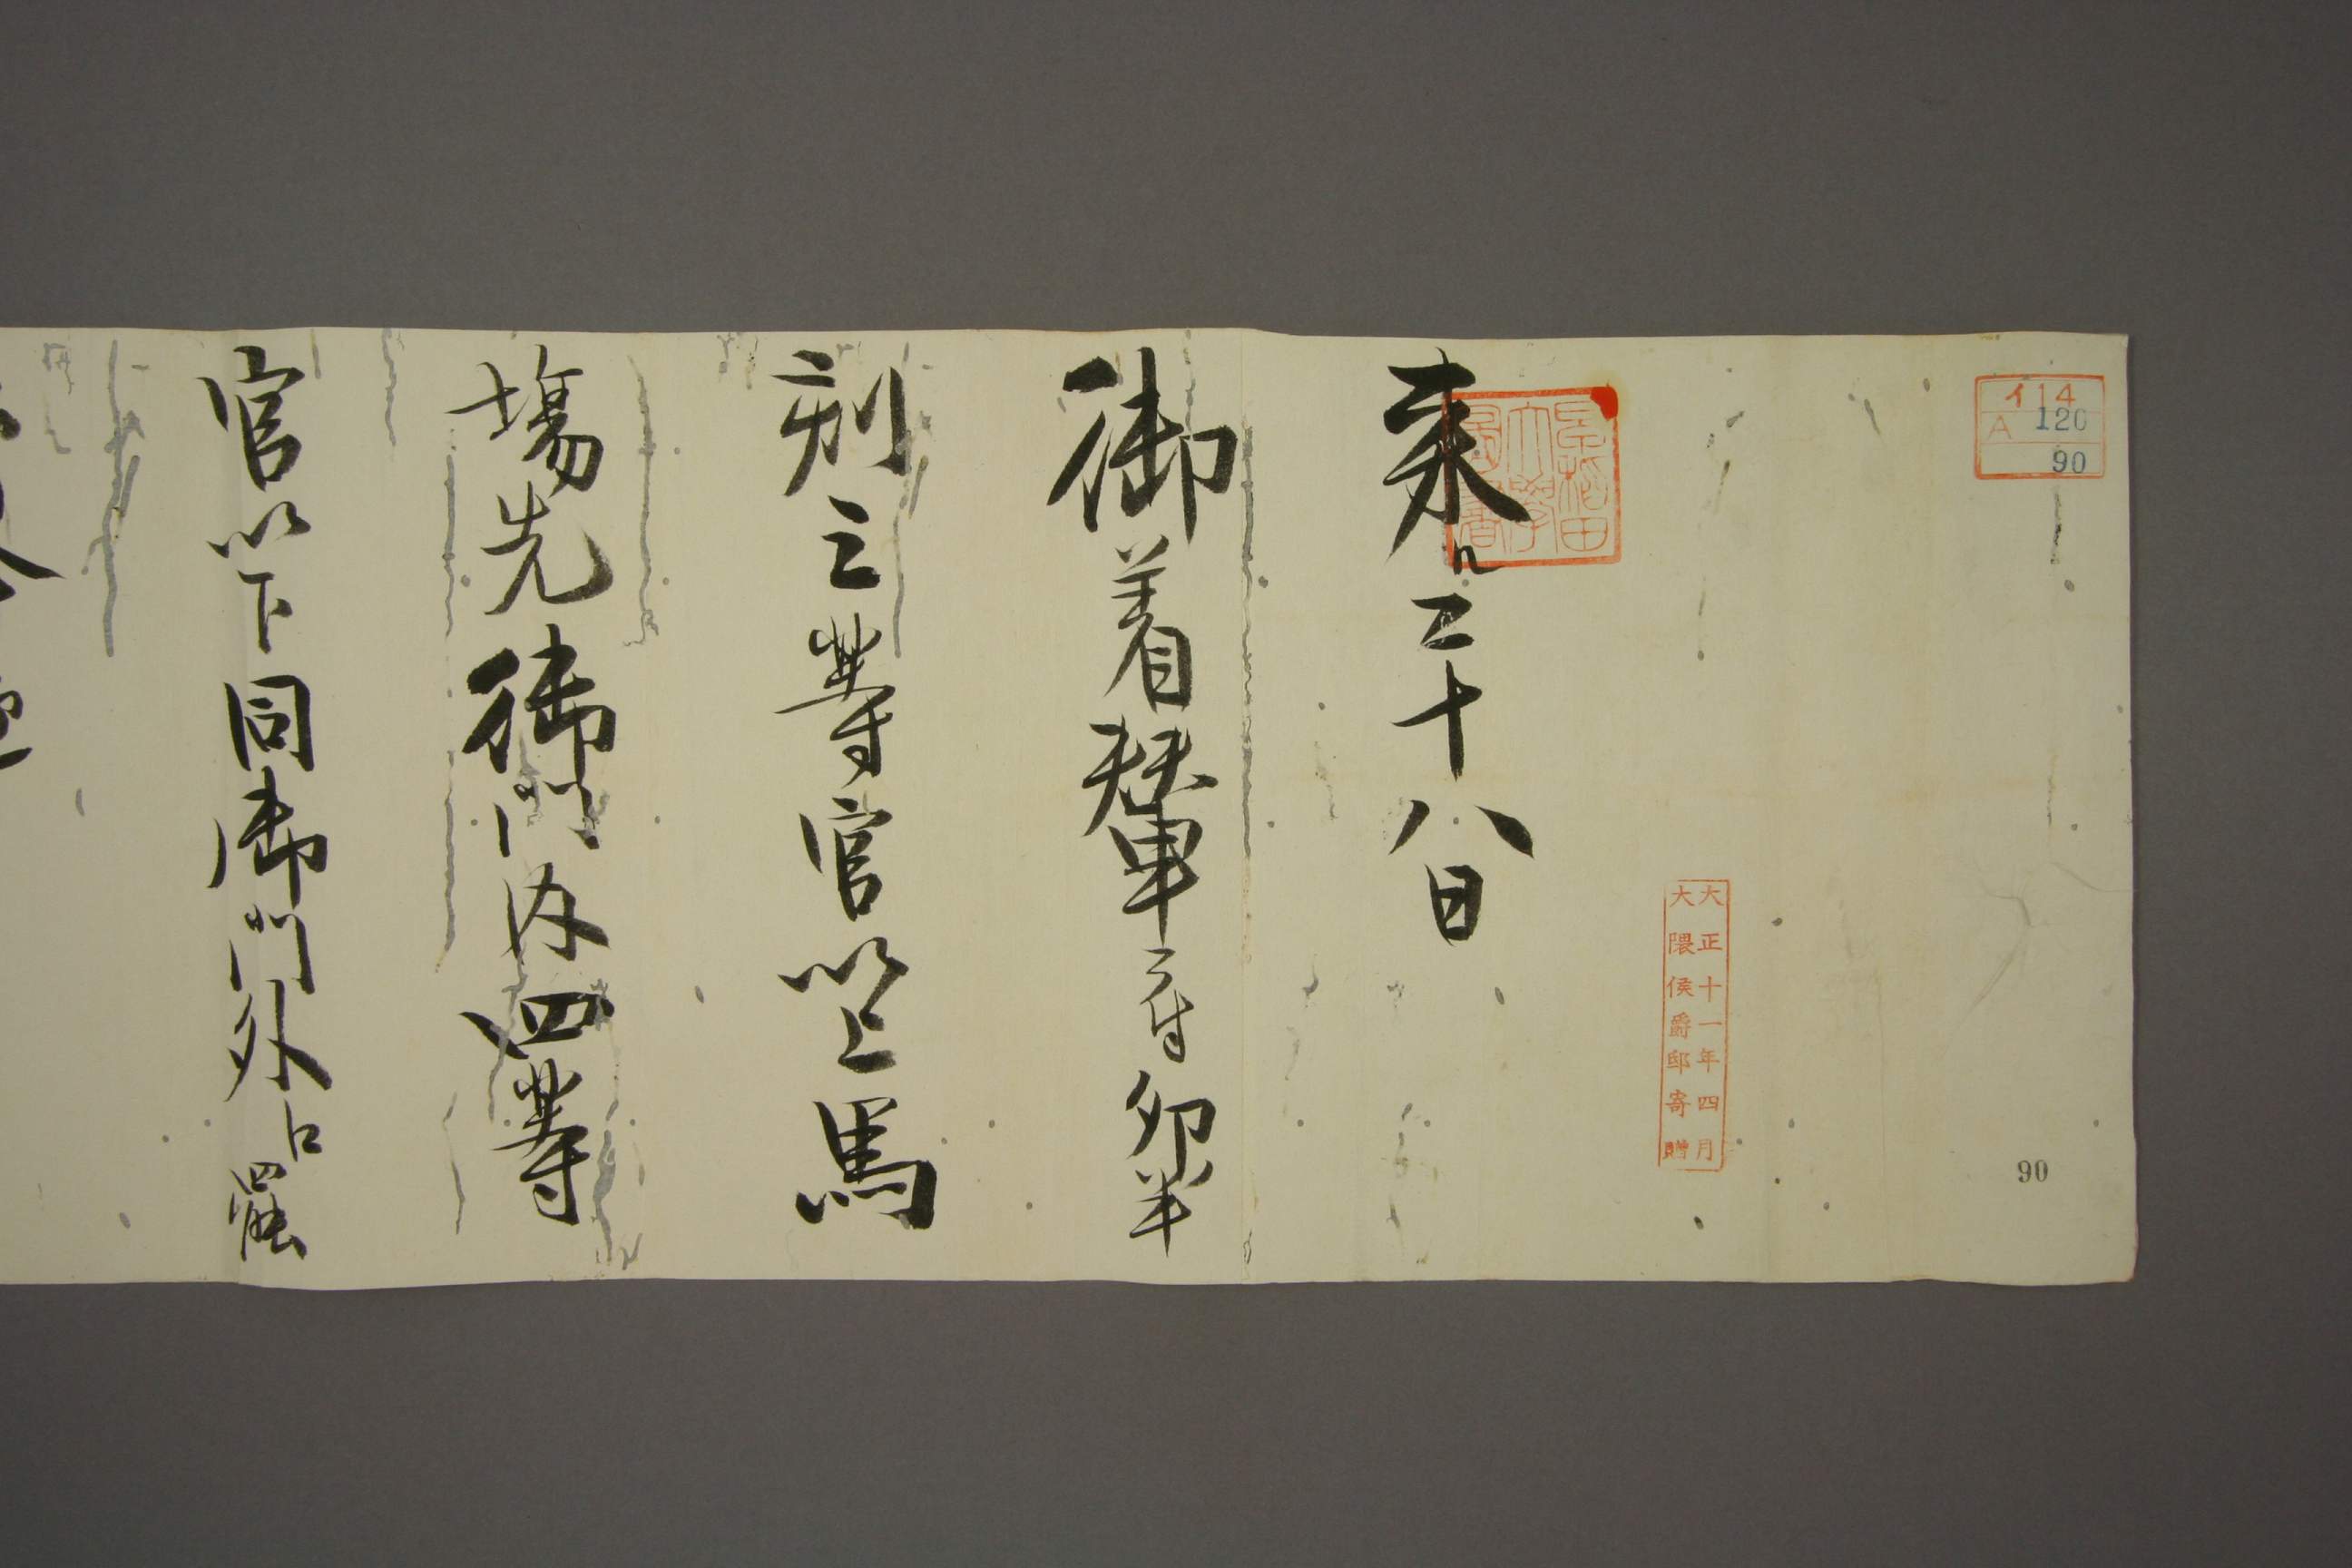 イ14
A 120
90
90
大正十一年四月
大隈侯爵邸寄贈
早稲田
大学
図書
来ル二十八日
御着輦ニ付卯半
刻三等官以上馬
場先御門内四等
官以下同御門外江罷